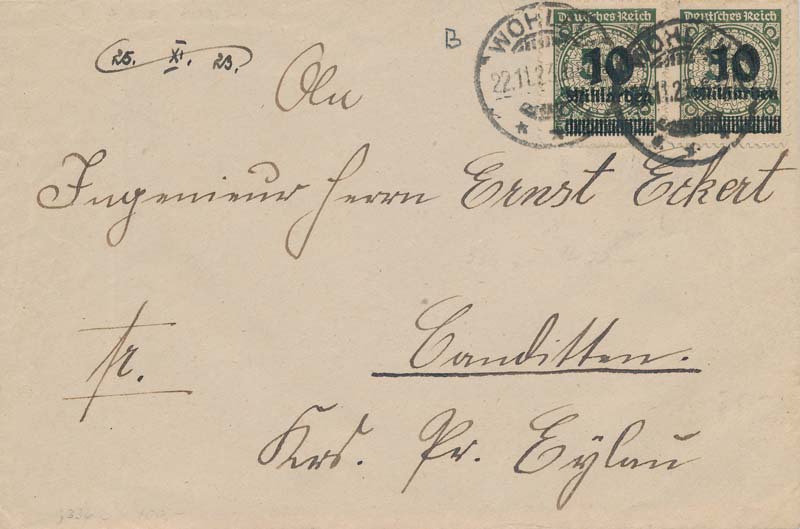 25. XI. 23.
B
Deutsches Reich
10
Milliarden
Deutsches Reich
10
Milliarden
WOHL
22.11.23
WOHL
11.23
An
Ingenieur Herrn Ernst Eckert
fr.
Canditten.
Krs. Pr. Eylau